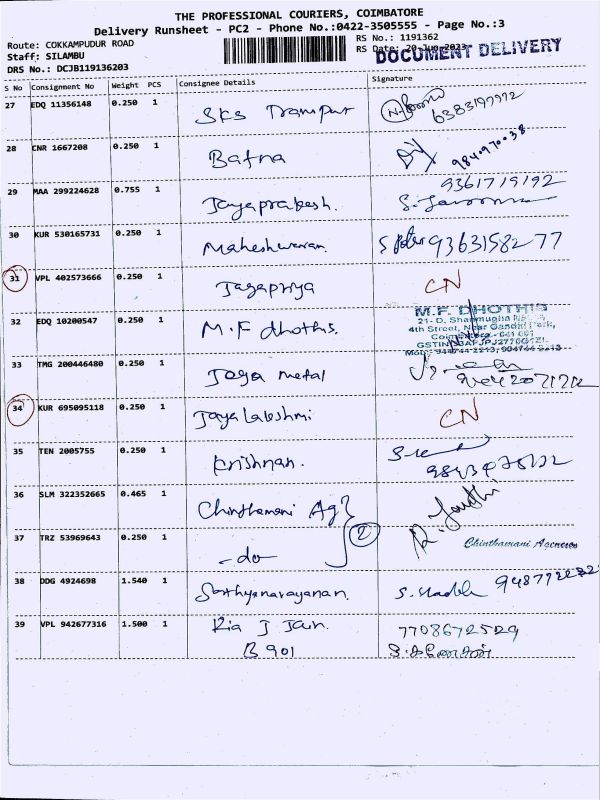 THE PROFESSIONAL COURIERS, COIMBATORE
Delivery Runsheet - PC2 - Phone No.:0422-3505555 - Page No.:3
Route: COKKAMPUDUR ROAD RS No.: 1191362
Staff: SILAMBU RS Date: 20-Jun-2023
DRS No.: DCJB119136203 DOCUMENT DELIVERY
S No Consignment No Weight PCS Consignee Details Signature
27 EDQ 11356148 0.250 1 SKS
28 CNR 1667208 0.250 1 Bafna
29 MAA 299224628 0.755 1 Jayaprakesh. 9361719192
30 KUR 530165731 0.250 1 Maheshwaran. 9363158277
31 VPL 402573666 0.250 1 Jayapriya CN
32 EDQ 10200547 0.250 1 M.F dhothis.
M.F. DHOTHIS
4th Street, Near Gandhi Park,
33 TMG 200446480 0.250 1 Jaya metal
34 KUR 695095118 0.250 1 Jayalakshmi CN
35 TEN 2005755 0.250 1 Krishnan.
36 SLM 322352665 0.465 1 Chinthamani Ag
37 TRZ 53969643 0.250 1 -do- 2 Chinthamani Agencies
38 DDG 4924698 1.540 1 Sathyanarayanan.
39 VPL 942677316 1.500 1 Ria J Jain. 7708672529
B 901